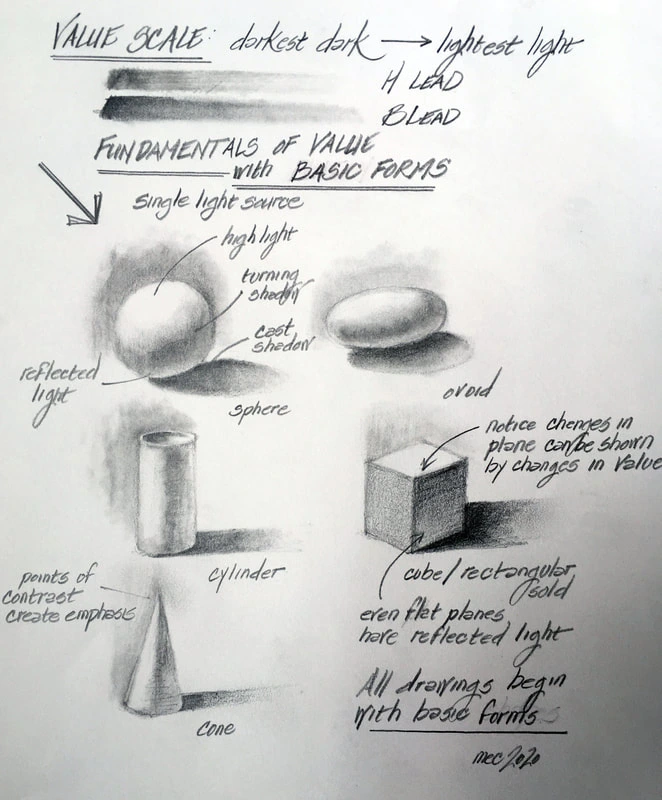 VALUE SCALE: darkest dark → lightest light
H LEAD
B LEAD
FUNDAMENTALS OF VALUE
with BASIC FORMS
single light source
highlight
turning
shadow
cast
shadow
reflected
light
sphere
ovoid
notice changes in
plane can be shown
by changes in value
cylinder
cube/rectangular
sold
points of
contrast
create emphasis
even flat planes
have reflected light
cone
All drawings begin
with basic forms
mec 2020